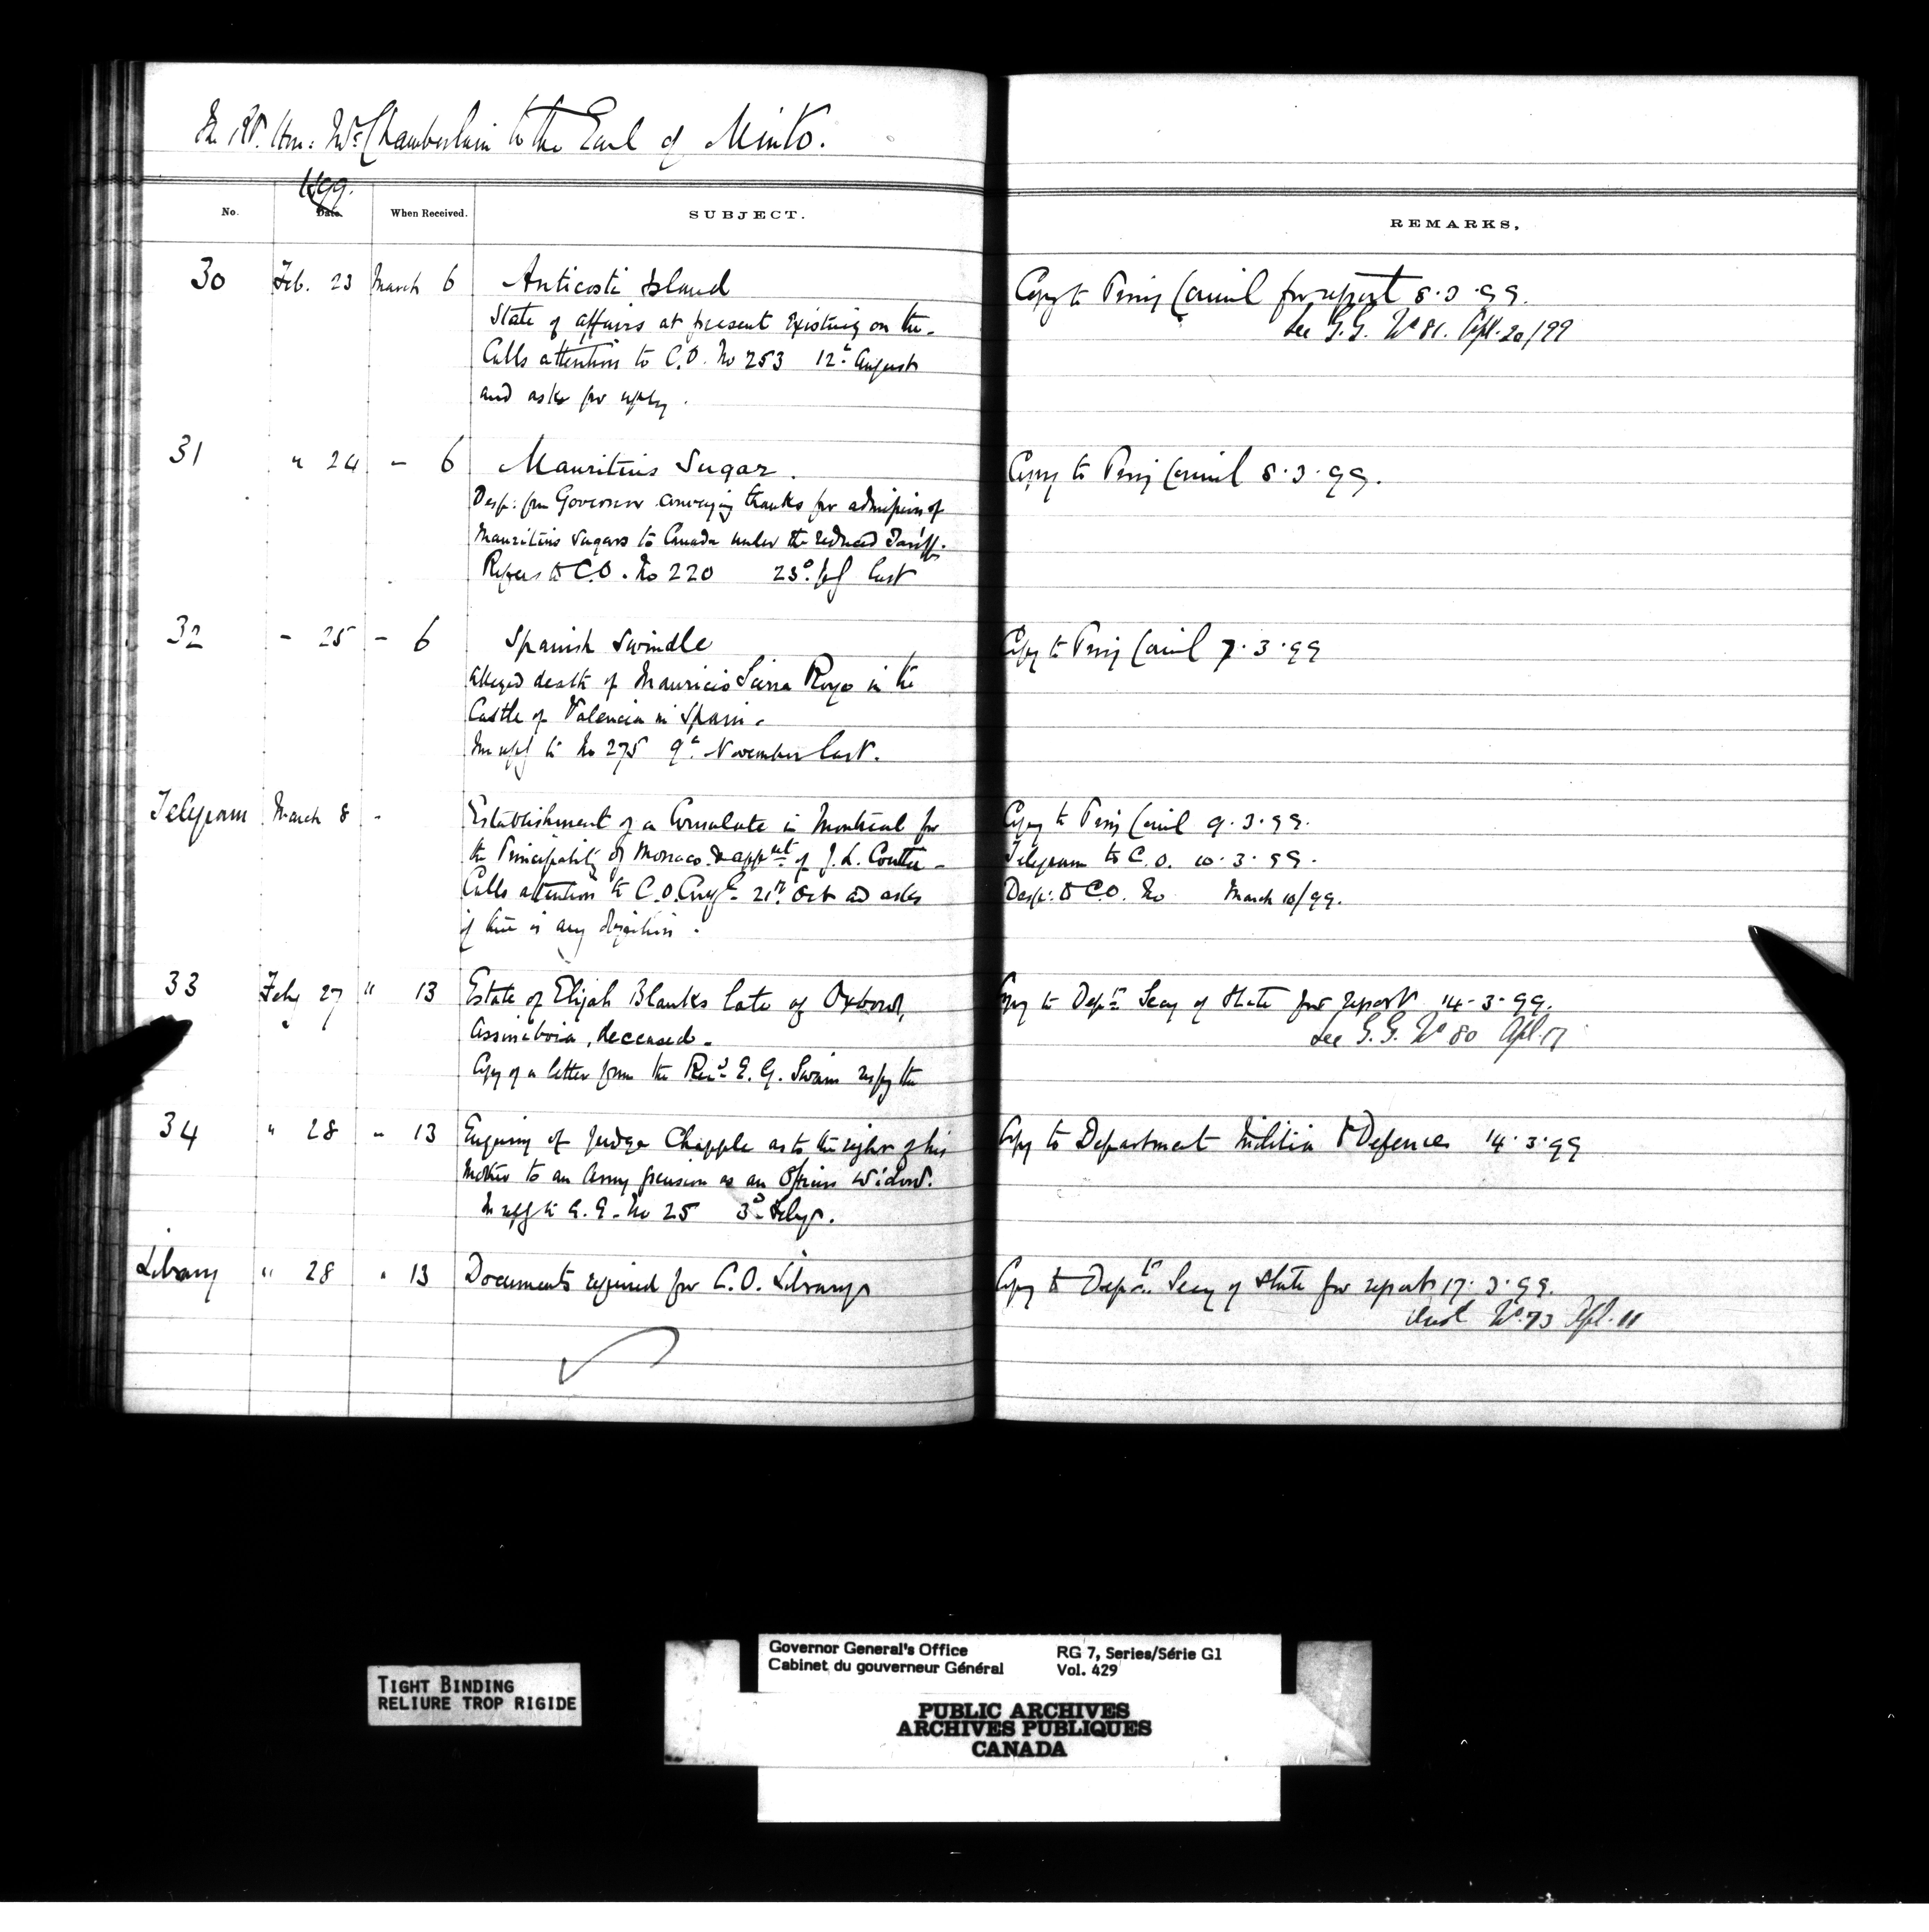 The Rt. Hon: Mr Chamberlain to the Earl of Minto.
1899.
No. Date. When Received. SUBJECT. REMARKS.
30 Feb. 23 March 6 Anticosti Island Copy to Privy Council for report 8.3.99.
State of affairs at present existing on the - See G.G. No 81. Apl. 20/99
Calls attention to C.O. No 253 12th August
and asks for reply.
31 " 24 - 6 Mauritius Sugar. Copy to Privy Council 8.3.99.
Desp: from Governor conveying thanks for admission of
Mauritius sugars to Canada under the reduced Tariff.
Refers to C.O. No 220 23d last
32 - 25 - 6 Spanish Swindle Copy to Privy Council 7.3.99
Alleged death of Mauricio Sierra Royo in the
Castle of Valencia in Spain.
In reply to No 275 9th November last.
Telegram March 8 - Establishment of a Consulate in Montreal for Copy to Privy Council 9.3.99.
the Principality of Monaco & appmt of J. L. Coutu - Telegram to C.O. 10.3.99.
Calls attention to C.O. 21st Oct and asks Desp: to C.O. No March 10/99.
if there is any objection.
33 Feby 27 " 13 Estate of Elijah Blanks late of Oxbow, Copy to Dept Secy of State for report 14-3-99.
Assiniboia, deceased. See G.G. No 80 Apl 17
Copy of a letter from the Revd E. G. Swain respg the
34 " 28 " 13 Enquiry of Judge Chapple as to the right of his Copy to Department Militia & Defence 14.3.99
mother to an Army pension as an Officers Widow.
In reply to G.G. No 25 3d Feby.
Library " 28 " 13 Documents required for C.O. Library Copy to Dept Secy of State for report 17.3.99.
No. 73 Apl. 11
TIGHT BINDING
RELIURE TROP RIGIDE
Governor General's Office RG 7, Series/Série G1
Cabinet du gouverneur Général Vol. 429
PUBLIC ARCHIVES
ARCHIVES PUBLIQUES
CANADA